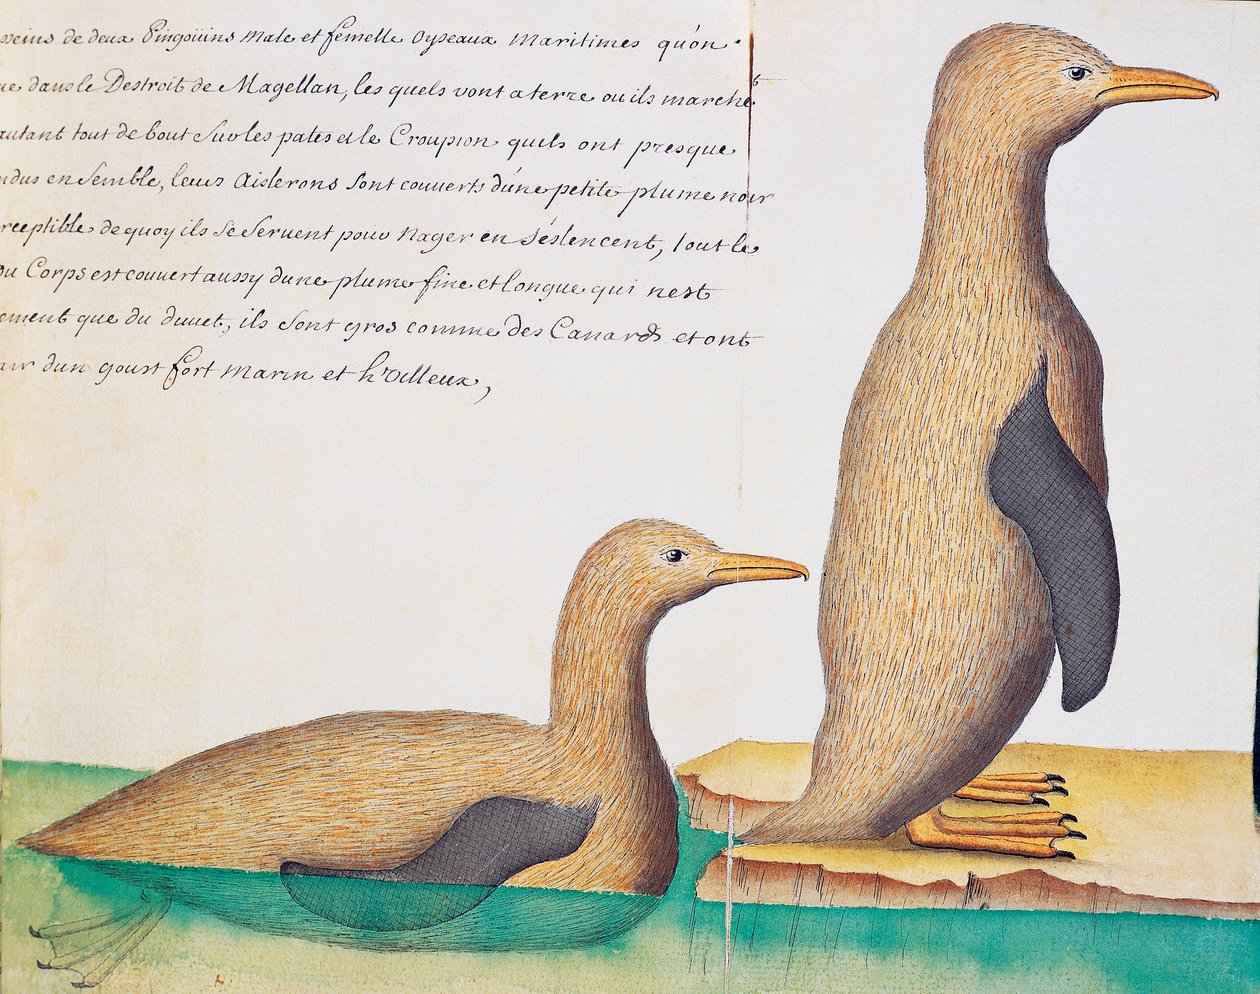 sseins de deux Pingoüins Male et femelle Oyseaux Maritimes qu'on
ue dans le Destroit de Magellan, les quels vont a terre ou ils marche
autant tout de bout Sur les pates et le Croupion quels ont presque
ndus en Semble, leurs Aislerons sont couverts d'une petite plume noir
rceptible de quoy ils se servent pour Nager en s'eslencent, tout le
ou Corps est couvert aussy dune plume fine et longue qui nest
ement que du duvet, ils sont gros comme des Canards et ont
air dun goust fort Marin et h'villeux,